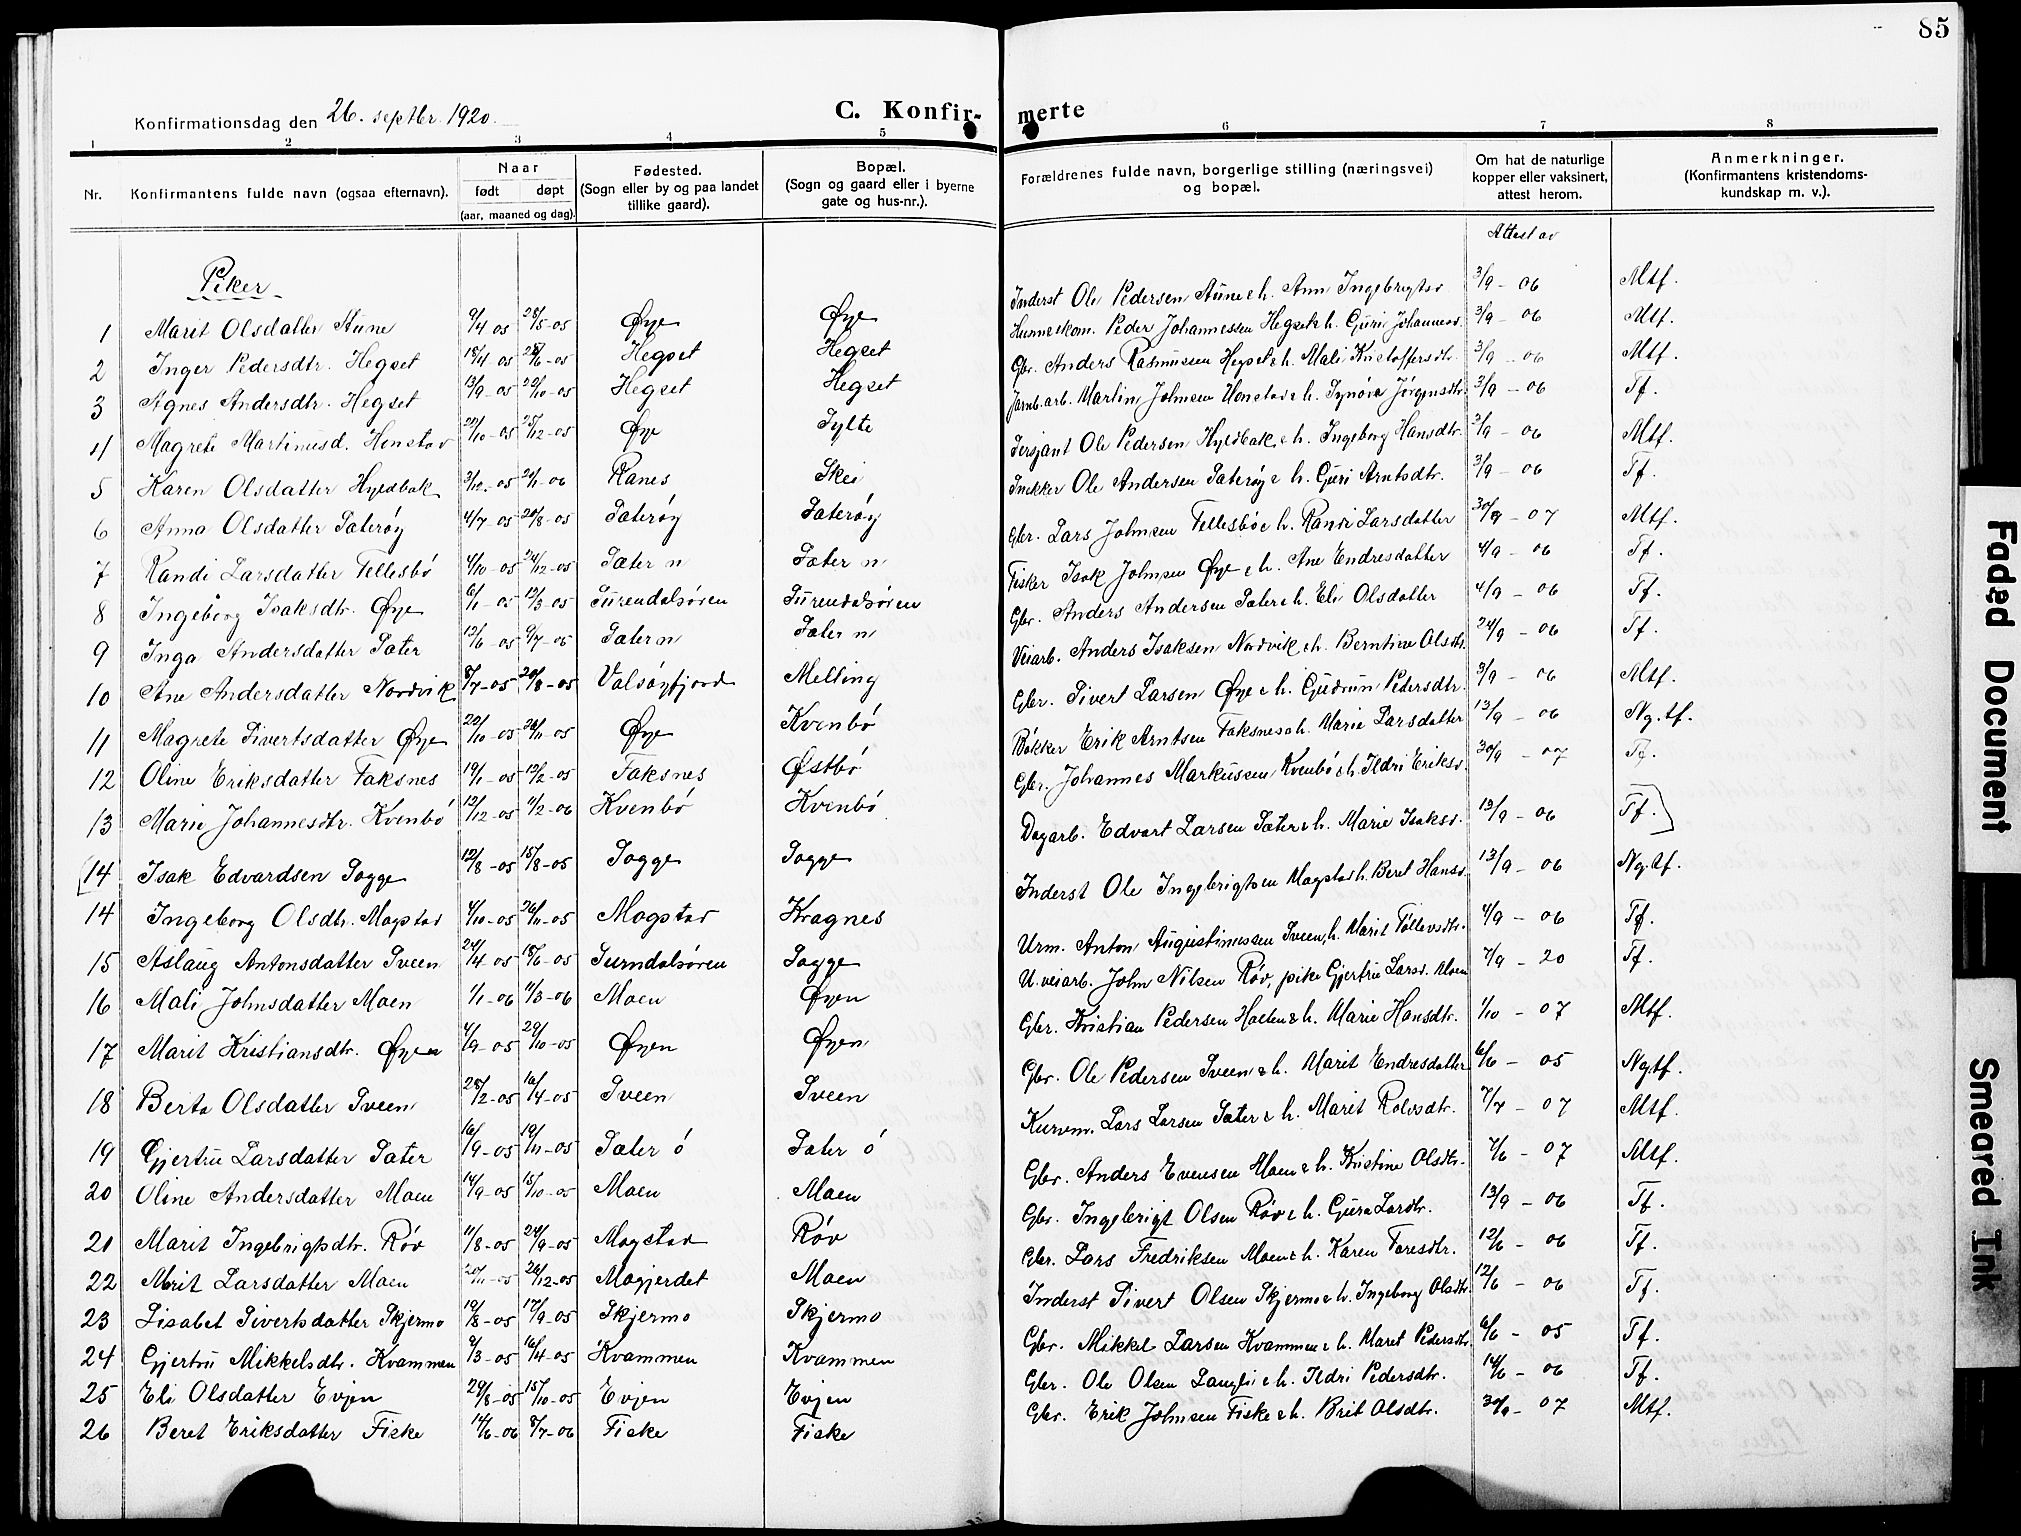 85
Konfirmationsdag den 26. septbr. 1920.
C. Konfir- merte
1 2 3 4 5 6 7 8
Nr. Konfirmantens fulde navn (ogsaa efternavn). Naar født døpt (aar, maaned og dag). Fødested. (Sogn eller by og paa landet tillike gaard). Bopæl. (Sogn og gaard eller i byerne gate og hus-nr.). Forældrenes fulde navn, borgerlige stilling (næringsvei) og bopæl. Om hat de naturlige kopper eller vaksinert, attest herom. Anmerkninger. (Konfirmantens kristendoms- kundskap m. v.).
Attest av
Piker
1 Marit Olsdatter Aune 9/4 05 28/5-05 Øye Øye Inderst Ole Pedersen Aune & h. Ann Ingebrigtsd 3/9 - 06 Mtf.
2 Inger Pedersdtr. Hegset 18/4 05 28/6-05 Hegset Hegset Peder Johannessen Hegset & h. Guri Johannesd. 3/9 - 06 Mtf.
3 Agnes Andersdtr. Hegset 13/9-05 22/10-05 Hegset Hegset Gbr. Anders Rasmussen Hegset & h. Mali Kristoffersdtr. 3/9 - 06 Mtf.
4 Magrete Martinusd. Honstad 22/10-05 25/12-05 Øye Sylte Jernb.arb. Martin Johnsen Honstad & h. Synøve Jørgensdtr. 3/9 - 06 Tf.
5 Karen Olsdatter Hyldbak 3/12-05 21/1-06 Ranes Skei Sersjant Ole Pedersen Hyldbak & h. Ingeborg Hansdtr. 3/9 - 06 Mtf.
6 Anna Olsdatter Sæterøy 4/7-05 20/8-05 Sæterøy Sæterøy Snekker Ole Andersen Sæterøy & h. Guri Arntsdtr. 3/9 - 06 Tf.
7 Randi Larsdatter Fellesbö 4/10-05 24/12-05 Sæter n Sæter n Gbr. Lars Johnsen Fellesbö & h. Randi Larsdatter 30/9 - 07 Mtf.
8 Ingeborg Isaksdtr. Øye 6/1-05 12/3-05 Surendalsøren Surendalsøren Fisker Isak Johnsen Øye & h. Ane Endresdatter 4/9 - 06 Tf.
9 Inga Andersdatter Sæter 12/6-05 9/7-05 Sæter n Sæter n Gbr. Anders Andersen Sæter & h. Eli Olsdatter 4/9 - 06 Tf.
10 Ane Andersdatter Nordvik 8/7-05 20/8-05 Valsøyfjord Melling Veiarb. Anders Isaksen Nordvik & h. Berntine Olsdtr. 24/9 - 06 Tf.
11 Magrete Sivertsdatter Øye 22/10-05 26/11-05 Øye Kvenbö Gbr. Sivert Larsen Øye & h. Gudrun Pedersdtr. 3/9 - 06 Mtf.
12 Oline Eriksdatter Faksnes 19/1-05 19/2-05 Faksnes Østbö Bökker Erik Arntsen Faksnes & h. Marie Larsdatter 13/9 - 06 Ng.tf.
13 Marie Johannesdtr. Kvenbö 12/12-05 11/2-06 Kvenbö Kvenbö Gbr. Johannes Markussen Kvenbö & h. Ildri Eriksd. 30/9 - 07 Tf.
(14 Isak Edvardsen Sogge 12/8-05 15/8-05 Sogge Sogge Dagarb. Edvart Larsen Sæter & h. Marie Isaksd. 13/9 - 06 Tf.)
14 Ingeborg Olsdtr. Mogstad 4/10-05 26/11-05 Mogstad Kragnes Inderst Ole Ingebrigtsen Mogstad & h. Beret Hansd. 13/9 - 06 Ng.tf.
15 Aslaug Antonsdatter Sveen 24/4 05 18/6-05 Surndalsøren Sogge Urm. Anton Augustinussen Sveen & h. Marit Tollevsdtr. 4/9 - 06 Tf.
16 Mali Johnsdatter Moen 1/1-06 11/3-06 Moen Øyen U. veiarb. John Nilsen Røv, pike Gjertru Larsd. Moen 7/9 - 20 Tf.
17 Marit Kristiansdtr. Øyen 4/9-05 29/10-05 Øyen Øyen Gbr. Kristian Pedersen Holten & h. Marie Hansdtr. 1/10 - 07 Mtf.
18 Berta Olsdatter Sveen 28/2-05 16/4-05 Sveen Sveen Gbr. Ole Pedersen Sveen & h. Marit Endresdatter 6/6 - 05 Ngtf.
19 Gjertru Larsdatter Sæter 16/9-05 19/11-05 Sæter ö Sæter ö Kurvm. Lars Larsen Sæter & h. Marit Rolvsdtr. 7/7 - 07 Mtf.
20 Oline Andersdatter Moen 14/9-05 15/10-05 Moen Moen Gbr. Anders Evensen Moen & h. Kristine Olsdtr. 7/6 - 07 Mtf.
21 Marit Ingebrigtsdtr. Röv 11/8-05 24/9-05 Mogstad Röv Gbr. Ingebrigt Olsen Röv & h. Gura Larsdtr. 13/9 - 06 Tf.
22 Marit Larsdatter Moen 20/11-05 26/12-05 Mogjerdet Moen Gbr. Lars Fredriksen Moen & h. Karen Toresdtr. 12/6 - 06 Tf.
23 Lisabet Sivertsdatter Skjermo 19/8-05 17/9-05 Skjermo Skjermo Inderst Sivert Olsen Skjermo & h. Ingeborg Olsdtr. 12/6 - 06 Tf.
24 Gjertru Mikkelsdtr. Kvammen 9/3-05 16/4-05 Kvammen Kvammen Gbr. Mikkel Larsen Kvammen & h. Maret Pedersdtr. 6/6 - 05 Tf.
25 Eli Olsdatter Evjen 29/8-05 15/10-05 Evjen Evjen Gbr. Ole Olsen Langli & h. Ildri Pedersdtr. 14/6 - 06 Tf.
26 Beret Eriksdatter Fiske 14/6-06 8/7-06 Fiske Fiske Gbr. Erik Johnsen Fiske & h. Brit Olsdtr. 30/9 - 07 Mtf.
Faded Document
Smeared Ink